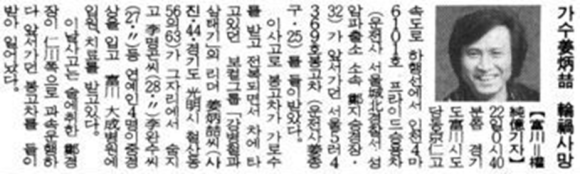 가수姜炳喆 輪禍사망
【富川=權
純億기자】
22일0시40
분쯤 경기
도富川시도
당동京仁고
속도로 하행선에서 인천4마
6101호 프라이드승용차
(운전사 서울城北경찰서 섬
암파출소 소속 鄭지승경장·
32)가 앞서가던 서울5러4
369호봉고차(운전사姜종
구·25)를 들이받았다.
이사고로 봉고차가 가로수
를 받고 전복되면서 차에 타
고있던 보컬그룹 「姜병철과
삼태기」의 리더 姜炳喆씨(사
진·44·경기도 光明시 철산동
56의63)가 그자리에서 숨지
고 李명규씨(28·〃) 李완수씨
(27·〃)등 연예인4명이 중경
상을 입고 富川 大成병원에
입원, 치료를 받고있다.
이날사고는 술에취한 鄭경
장이 仁川쪽으로 과속운행하
다 앞서가던 봉고차를 들이
받아 일어났다.